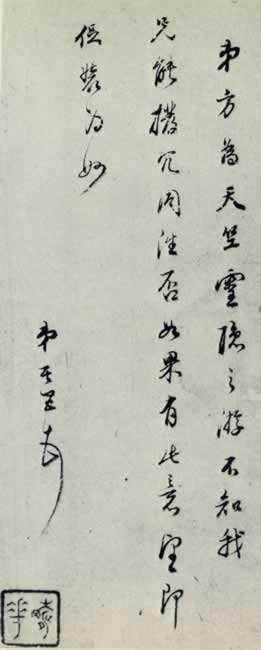 弟方為天竺靈隱之游不知我
兄能撥冗同往否如果有此意望即
促裝為妙
弟